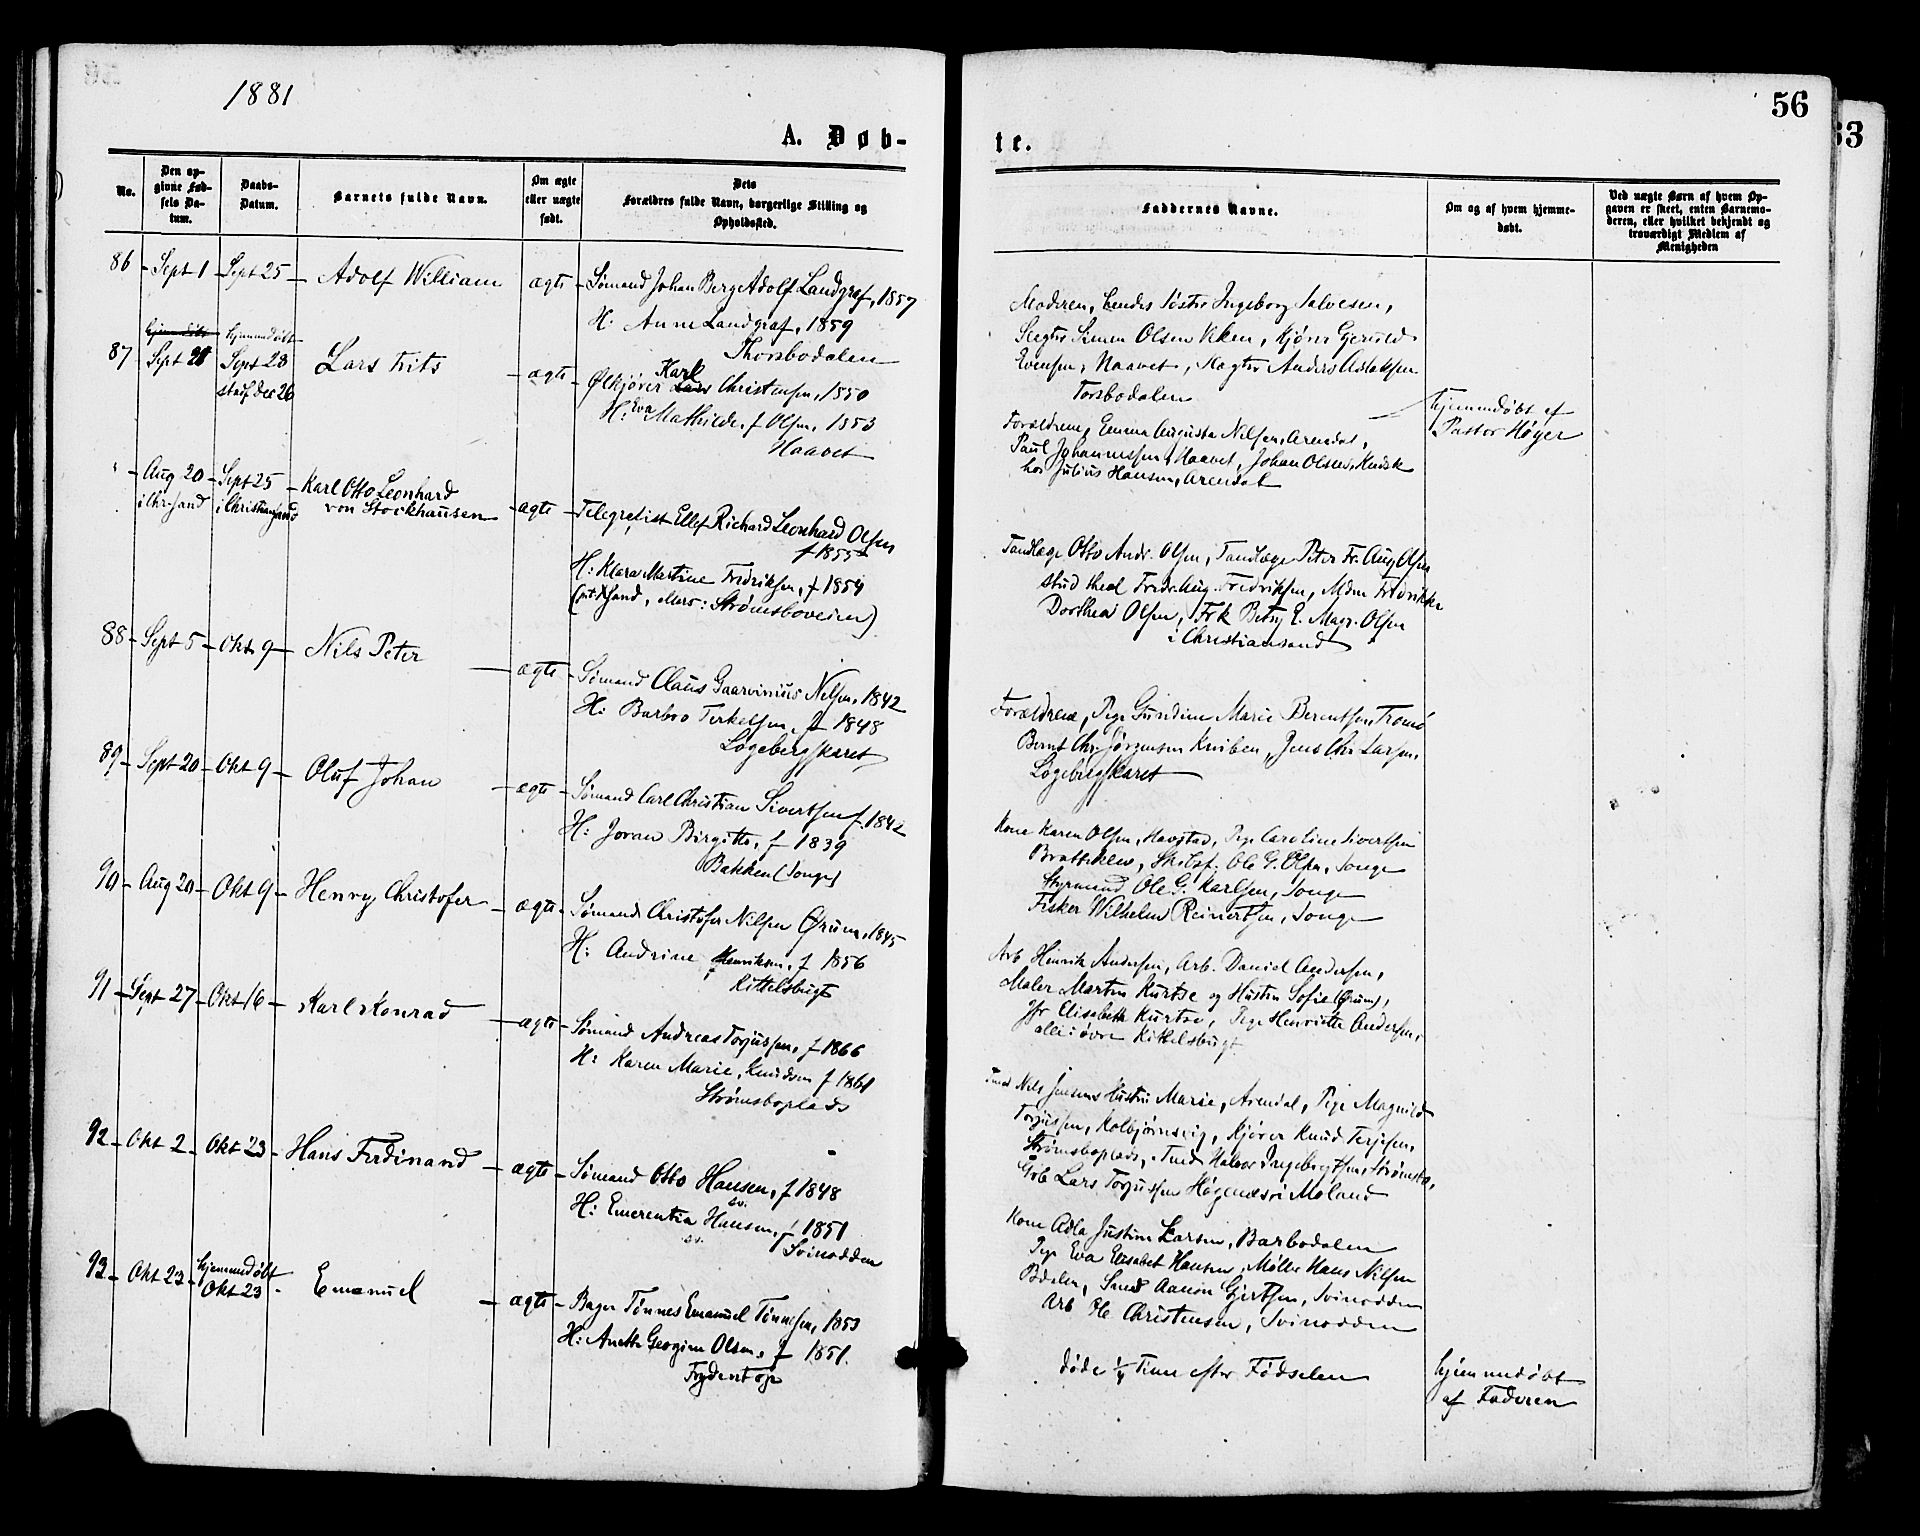 1881
56
63
A. Døb-
te.
No.
Den op-
givne Fød-
sels Da-
tum.
Daabs-
Datum.
Barnets fulde Navn.
Om ægte
eller uægte
født.
Dets
Forældres fulde Navn, borgerlige Stilling og
Opholdssted.
Faddernes Navne.
Om og af hvem hjemme-
døbt.
Ved uægte Børn af hvem Op-
gaven er skeet, enten Barnemo-
deren, eller hvilket bekjendt og
troværdigt Medlem af
Menigheden
86 Sept 1 Sept 25 Adolf William ægte Sømand Johan Berg Adolf Landgraf, 1857
H: Anne Landgraf, 1859
Thorsbodalen
Moderen, hendes Søster Ingeborg Salvesen,
Simen Olsen Viken, Kjører Gjeruld
Evensen, Haavet, Slagter Anders Aslaksen
Torsbodalen
87 Sept 21 hjemmedøbt
Sept 23
stadf Dec 26
Lars Frits ægte Ølkjører Karl Christensen, 1850
H: Eva Mathilde, f Olsen, 1853
Haavet
Forældrene, Emma Augusta Nilsen, Arendal,
Paul Johannessen, Haavet, Johan Olsen, Kudsk
hos Julius Hansen, Arendal
hjemmedøbt af
Pastor Høyer
" Aug 20
i Chr.sand
Sept 25
i Christiansand
Karl Otto Leonhard
von Stockhausen
ægte Telegrafist Ellef Richard Leonhard Olsen
f 1855
H: Klara Martine Fredriksen, f 1854
Strømsboveien)
Tandlæge Otto Andr. Olsen, Tandlæge Peter Fr. Aug Olsen
stud med Fredr. Aug. Fredriksen, Mdm Fredrikke
Dorthea Olsen, Frk Betsy E. Magr. Olsen
i Christiansand
88 Sept 5 Okt 9 Nils Peter ægte Sømand Claus Gaarvinius Nilsen, 1842
H: Barbro Terkelsen, f 1848
Løgebergskaret
Forældrene, Pige Gundine Marie Berentsen, Tromø
Bernt Chr. Jørgensen Kniben, Jens Chr Larsen,
Løgebergskaret
89 Sept 20 Okt 9 Oluf Johan ægte Sømand Carl Christian Sivertsen f. 1842
H: Joran Birgitte, f 1839
Bakken (Songe)
Kone Karen Olsen, Havstad, Pige Caroline Sivertsen
Brattekleiv, Skibsf. Ole G. Olsen, Songe
Styrmand Ole G. Karlsen, Songe
Fisker Wilhelm Reinertsen, Songe
90 Aug 20 Okt 9 Henry Christofer ægte Sømand Christofer Nilsen Ørum, 1845
H: Andrine Henriksen, f 1856
Kittelsbugt
Arb Hinrik Andersen, Arb. Daniel Andersen,
Maler Martin Kurtse og Hustru Sofie (Ørum),
Jfr Elisabeth Kurtse, Pige Henriette Andersen,
alle i øvre Kittelsbugt
91 Sept 27 Okt 16 Karl Konrad ægte Sømand Andreas Torjussen, f 1866
H: Karen Marie, Knudsen f 1861
Strømsboplads
Tmd Nils Jensens Hustru Marie, Arendal, Pige Magnild
Torjussen, Kolbjørnsvig, Kjører Knud Terjesen,
Strømsboplads, Tmd Halvor Ingebregtsen, Strømsbo,
Grb Lars Torjussen Høgenæs i Moland
92 Okt 2 Okt 23 Hans Ferdinand ægte Sømand Otto Hansen, f 1848
H: Emerentia Hansen, f 1851
Svinodden
Kone Adla Justine Larsen, Barbodalen
Pige Eva Elisabet Hansen, Møller Hans Nilsen
Bdalen, Smed Aanon Gjertsen, Svinodden
Arb Ole Christensen, Svinodden
93 Okt 23 hjemmedøbt
Okt 23
Emanuel ægte Bager Tønnes Emanuel Tønnesen, 1853
H: Anette Georgine Olsen, f 1851.
Frydentop
døde 1/4 Time efter Fødselen
hjemmedøbt
af Faderen